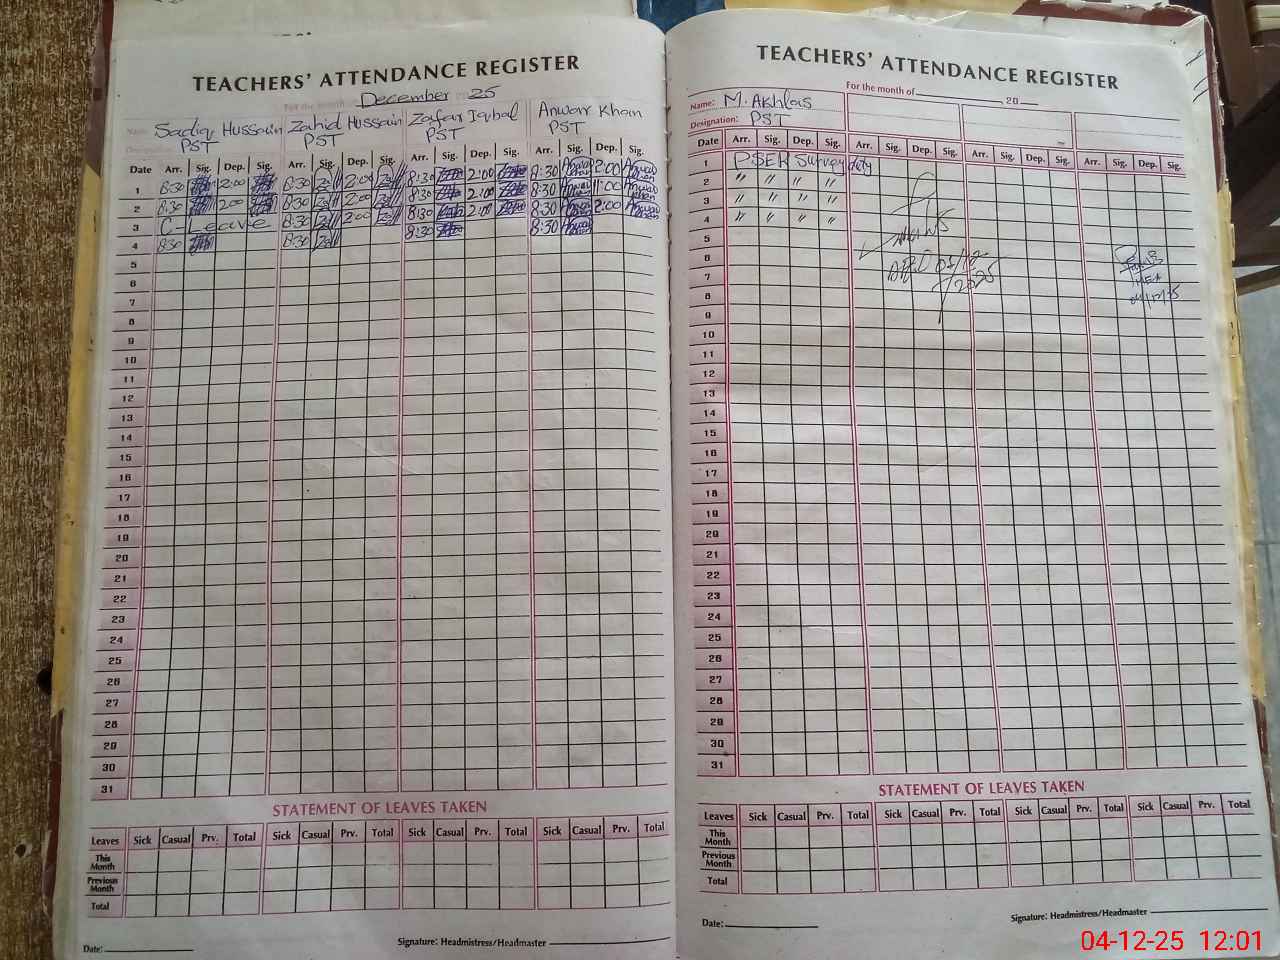 TEACHERS' ATTENDANCE REGISTER
For the month of December 25
Name: Sadiq Hussain Zahid Hussain Zafar Iqbal Anwar Khan
PST PST PST PST
Date Arr. Sig. Dep. Sig. Arr. Sig. Dep. Sig. Arr. Sig. Dep. Sig. Arr. Sig. Dep. Sig.
1 8:30 2:00 8:30 2:00 8:30 2:00 8:30 2:00
2 8:30 2:00 8:30 2:00 8:30 2:00 8:30 11:00
3 C-Leave 8:30 2:00 8:30 2:00 8:30 2:00
4 8:30 8:30 8:30 8:30
5
6
7
8
9
10
11
12
13
14
15
16
17
18
19
20
21
22
23
24
25
26
27
28
29
30
31
STATEMENT OF LEAVES TAKEN
Leaves Sick Casual Prv. Total Sick Casual Prv. Total Sick Casual Prv. Total Sick Casual Prv. Total
This Month
Previous Month
Total
Date:
Signature: Headmistress/Headmaster
TEACHERS' ATTENDANCE REGISTER
For the month of 20
Name: M. Akhlas
Designation: PST
Date Arr. Sig. Dep. Sig. Arr. Sig. Dep. Sig. Arr. Sig. Dep. Sig. Arr. Sig. Dep. Sig.
1 PSER Survey duty
2 " " " "
3 " " " "
4 " " " "
5
6
7
8
9
10
11
12
13
14
15
16
17
18
19
20
21
22
23
24
25
26
27
28
29
30
31
STATEMENT OF LEAVES TAKEN
Leaves Sick Casual Prv. Total Sick Casual Prv. Total Sick Casual Prv. Total Sick Casual Prv. Total
This Month
Previous Month
Total
Date:
Signature: Headmistress/Headmaster
04-12-25 12:01